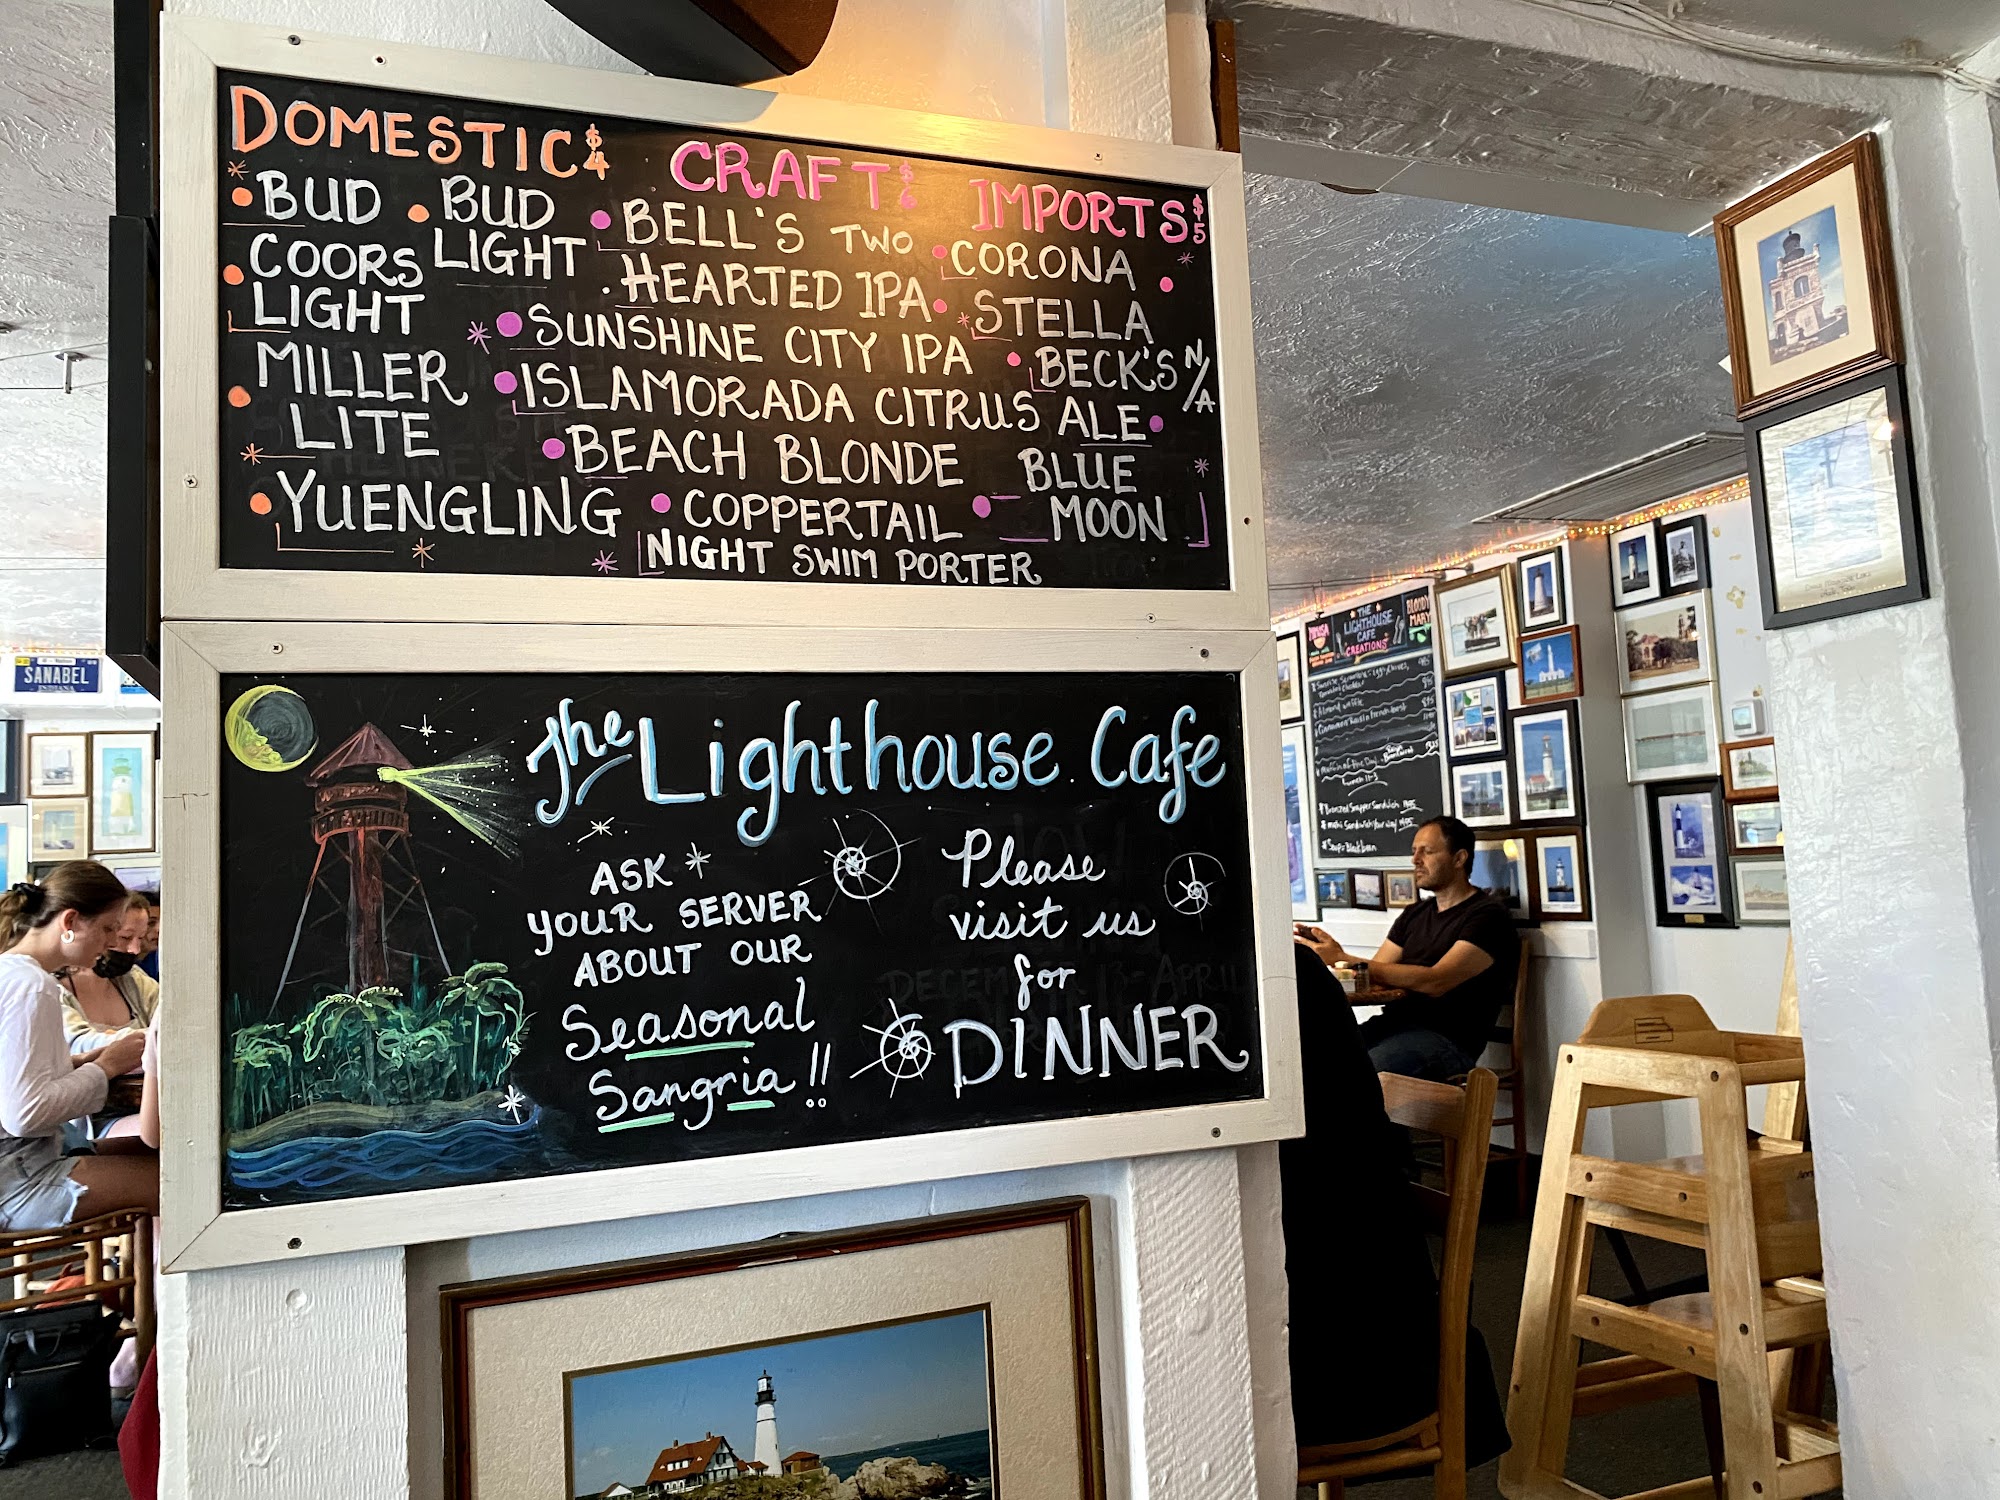 DOMESTIC $4
BUD
BUD LIGHT
COORS LIGHT
MILLER LITE
YUENGLING
CRAFT $6
BELL'S TWO
HEARTED IPA
SUNSHINE CITY IPA
ISLAMORADA CITRUS ALE
BEACH BLONDE
COPPERTAIL
NIGHT SWIM PORTER
BLUE
MOON
IMPORTS $5
CORONA
STELLA
BECK'S N/A
The Lighthouse Cafe
ASK
YOUR SERVER
ABOUT OUR
Seasonal
Sangria!!
Please
visit us
for
DINNER
SANABEL
INDIANA
MIMOSA
THE
LIGHTHOUSE
CAFE
CREATIONS
BLOODY
MARY